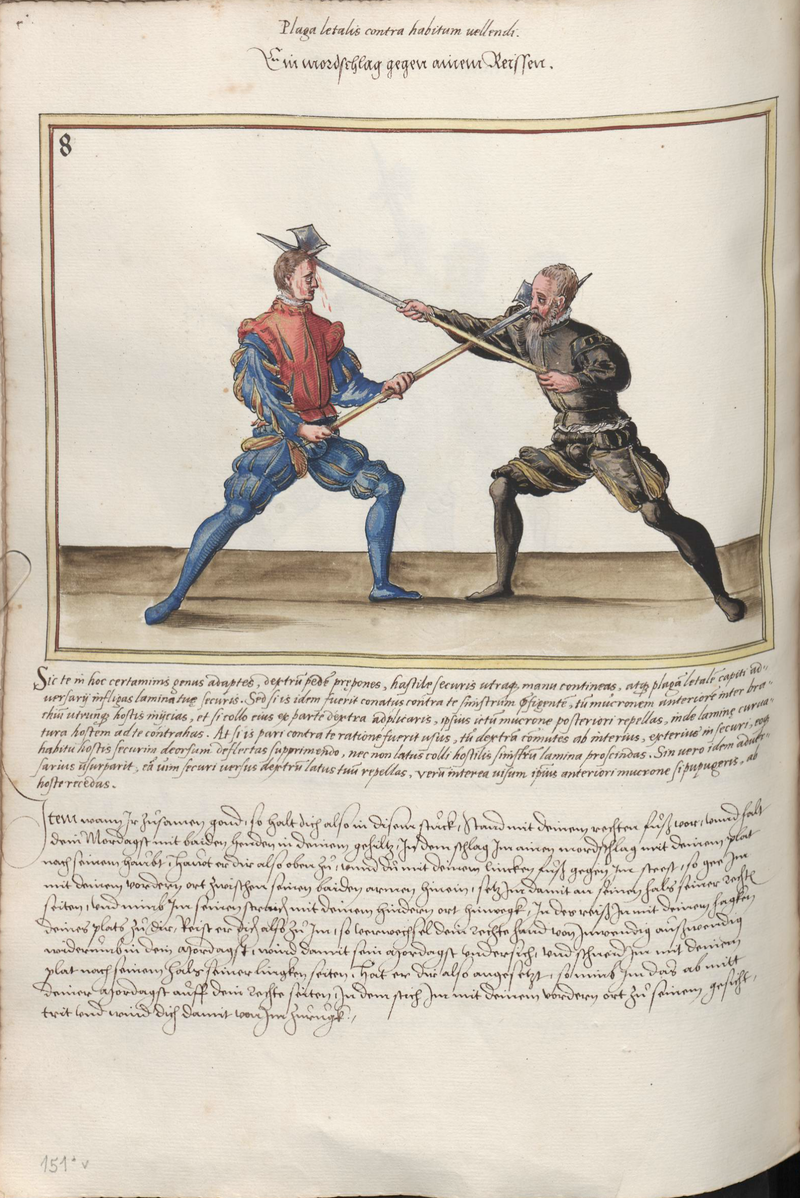 Plaga letalis contra habitum vellendi.
Ein mordschlag gegen ainem Reissen.
8
Sic te in hoc certaminis genus adaptes, dextrū pedē prępones, hastile securis utraq. manu contineas, atq. plagā letalē capiti ad-
versarij infligas lamina tuę securis. Sed si is idem fuerit conatus contra te sinistrum pedem figente, tū mucronem anteriorē inter bra-
chiū utrunq. hostis inijcias, et si collo eius ex parte dextra adplicaris, ipsius ictū mucrone posteriori repellas, inde laminę curua-
tura hostem ad te contrahas. At si is pari contra te ratione fuerit usus, tū dextrā cōmutes ab interius, exterius in securi, eoq.
habitu hostis securim deorsum deflectas supprimendo, nec non latus colli hostilis sinistrū lamina proscindas. Sin uero idem aduer-
sarius usurparit, eā uim securi versus dextrū latus tuū repellas, verū interea uisum ipsius anteriori mucrone si pupugeris, ab
hoste recedas.
Item wann Ir zusamen gond, so halt dich also in disem stuckh, Stand mit deinem rechten fuß vor, vnnd halt
dein Mordagst mit baiden henden in deinem gehiltz, In dem schlag Im ainen mordschlag mit deinem plat
nach seinem haubt, Hawt er dir also oben zu, vnnd du mit deinem lincken fuß gegen Im steest, so gee Im
mit deinem vordern ort zwischen seinen baiden armen hinein, setz Im damit an seinen hals seiner rechtē
seiten, vnd nimb Im seinen straich mit deinem hindern ort hinwegk, In des reiß In mit deinem hagken
deines plats zu dir, Reist er dich also zu Im, so verwechsel dein rechte hand von Inwendig außwendig
widerumb in dein Mordagst, wind damit sein Mordagst vndersich, vnd schneid Im mit deinem
plat nach seinem hals seiner lingken seiten, Hat er dir also angesetzt, so nimb Im das ab mitt
deiner Mordagst auff dein rechte seiten, In dem stich Im mit deinem vordern ort zu seinem gesicht,
trit vnd wind dich damit von Im zurugk.
151* v